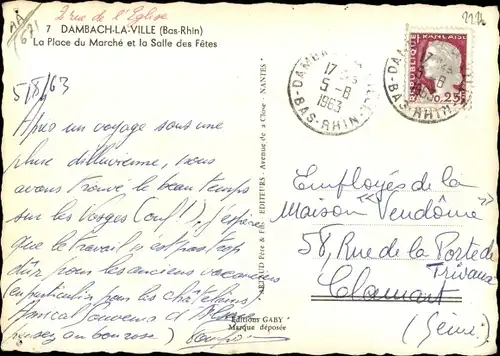 2 rue de l'Eglise
AA
671
7 DAMBACH-LA-VILLE (Bas-Rhin)
La Place du Marché et la Salle des Fêtes
5/8/63
Après un voyage sous une
pluie diluvienne, nous
avons trouvé le beau temps
sur les Vosges (ouf!) J'espère
que le travail n'est pas trop
dûr pour les anciens vacanciers
(en particulier pour les châtelains)
Amical souvenir d'Alsace
ARTAUD Père & Fils EDITEURS - Avenue de la Close - NANTES
Editions GABY
Marque déposée
DAMBACH-LA-VILLE
17
5-8
1963
BAS-RHIN
REPUBLIQUE FRANÇAISE
0,25
Employés de la
Maison "Vendôme"
58, Rue de la Porte de
Trivaux
Clamart
(Seine)